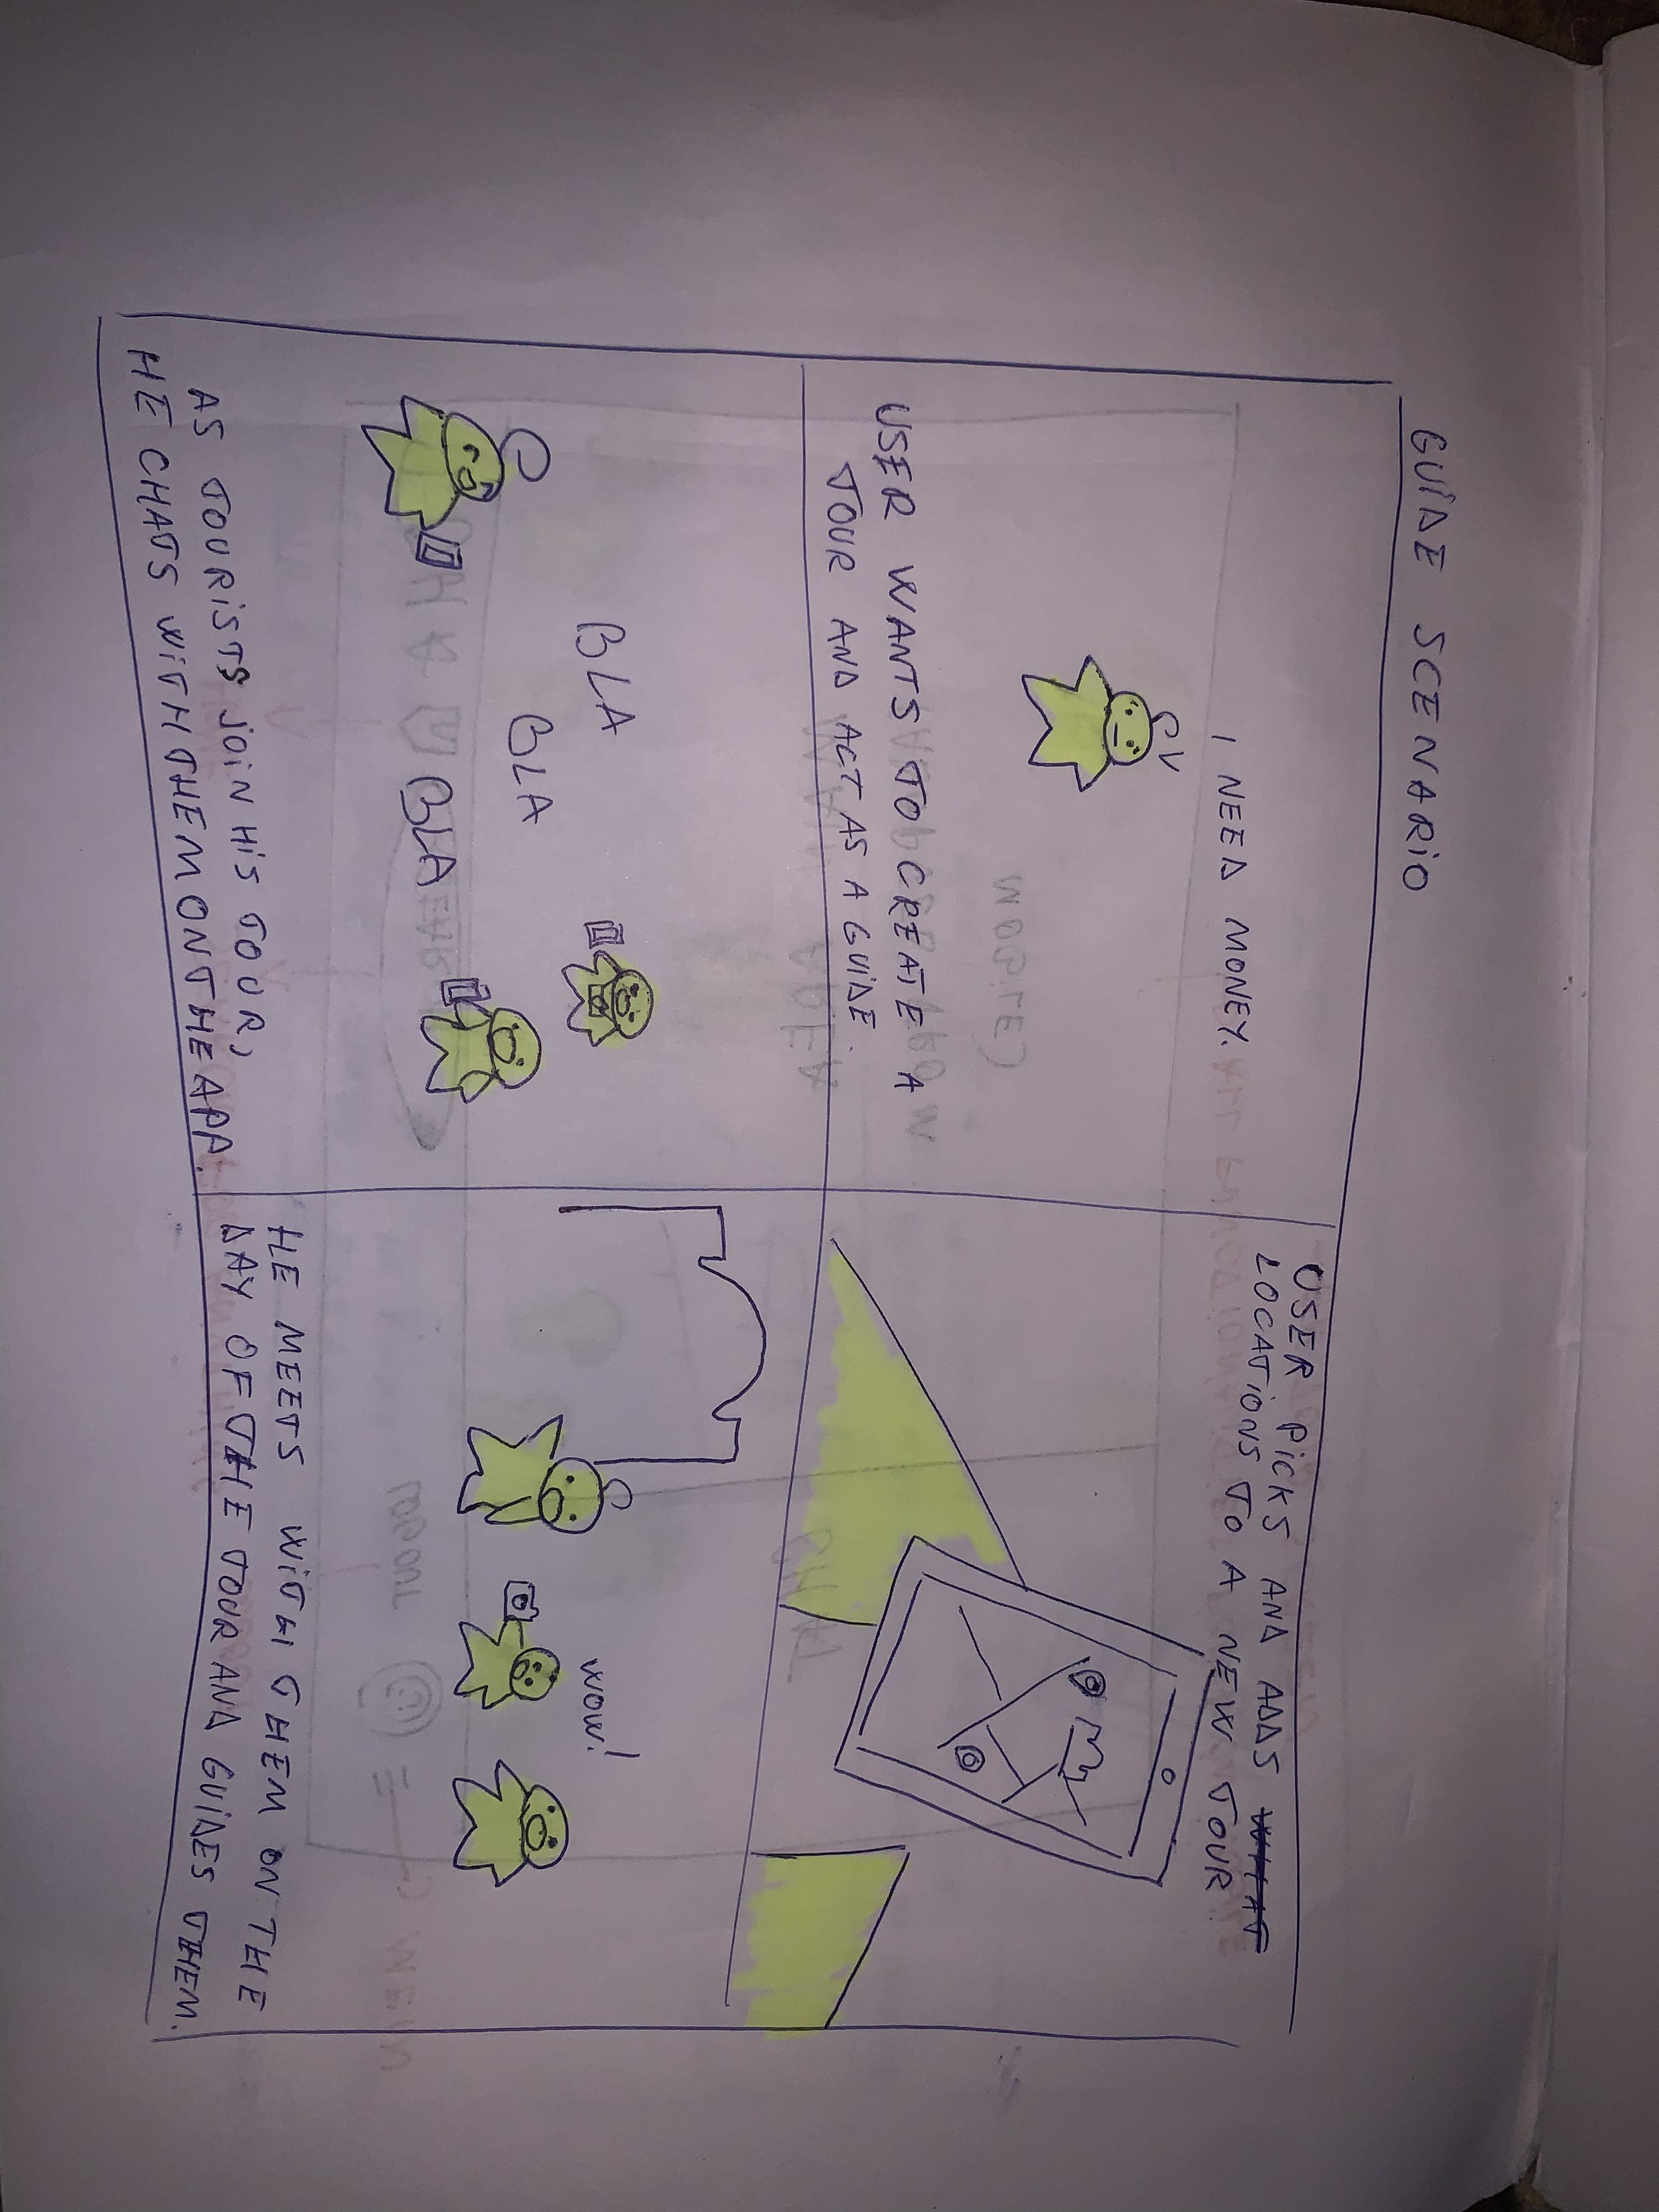 GUIDE SCENARIO
I NEED MONEY.
USER WANTS TO CREATE A
TOUR AND ACT AS A GUIDE.
USER PICKS AND ADDS
LOCATIONS TO A NEW TOUR.
BLA
BLA
BLA
AS TOURISTS JOIN HIS TOUR,
HE CHATS WITH THEM ON THE APP.
WOW!
HE MEETS WITH THEM ON THE
DAY OF THE TOUR AND GUIDES THEM.